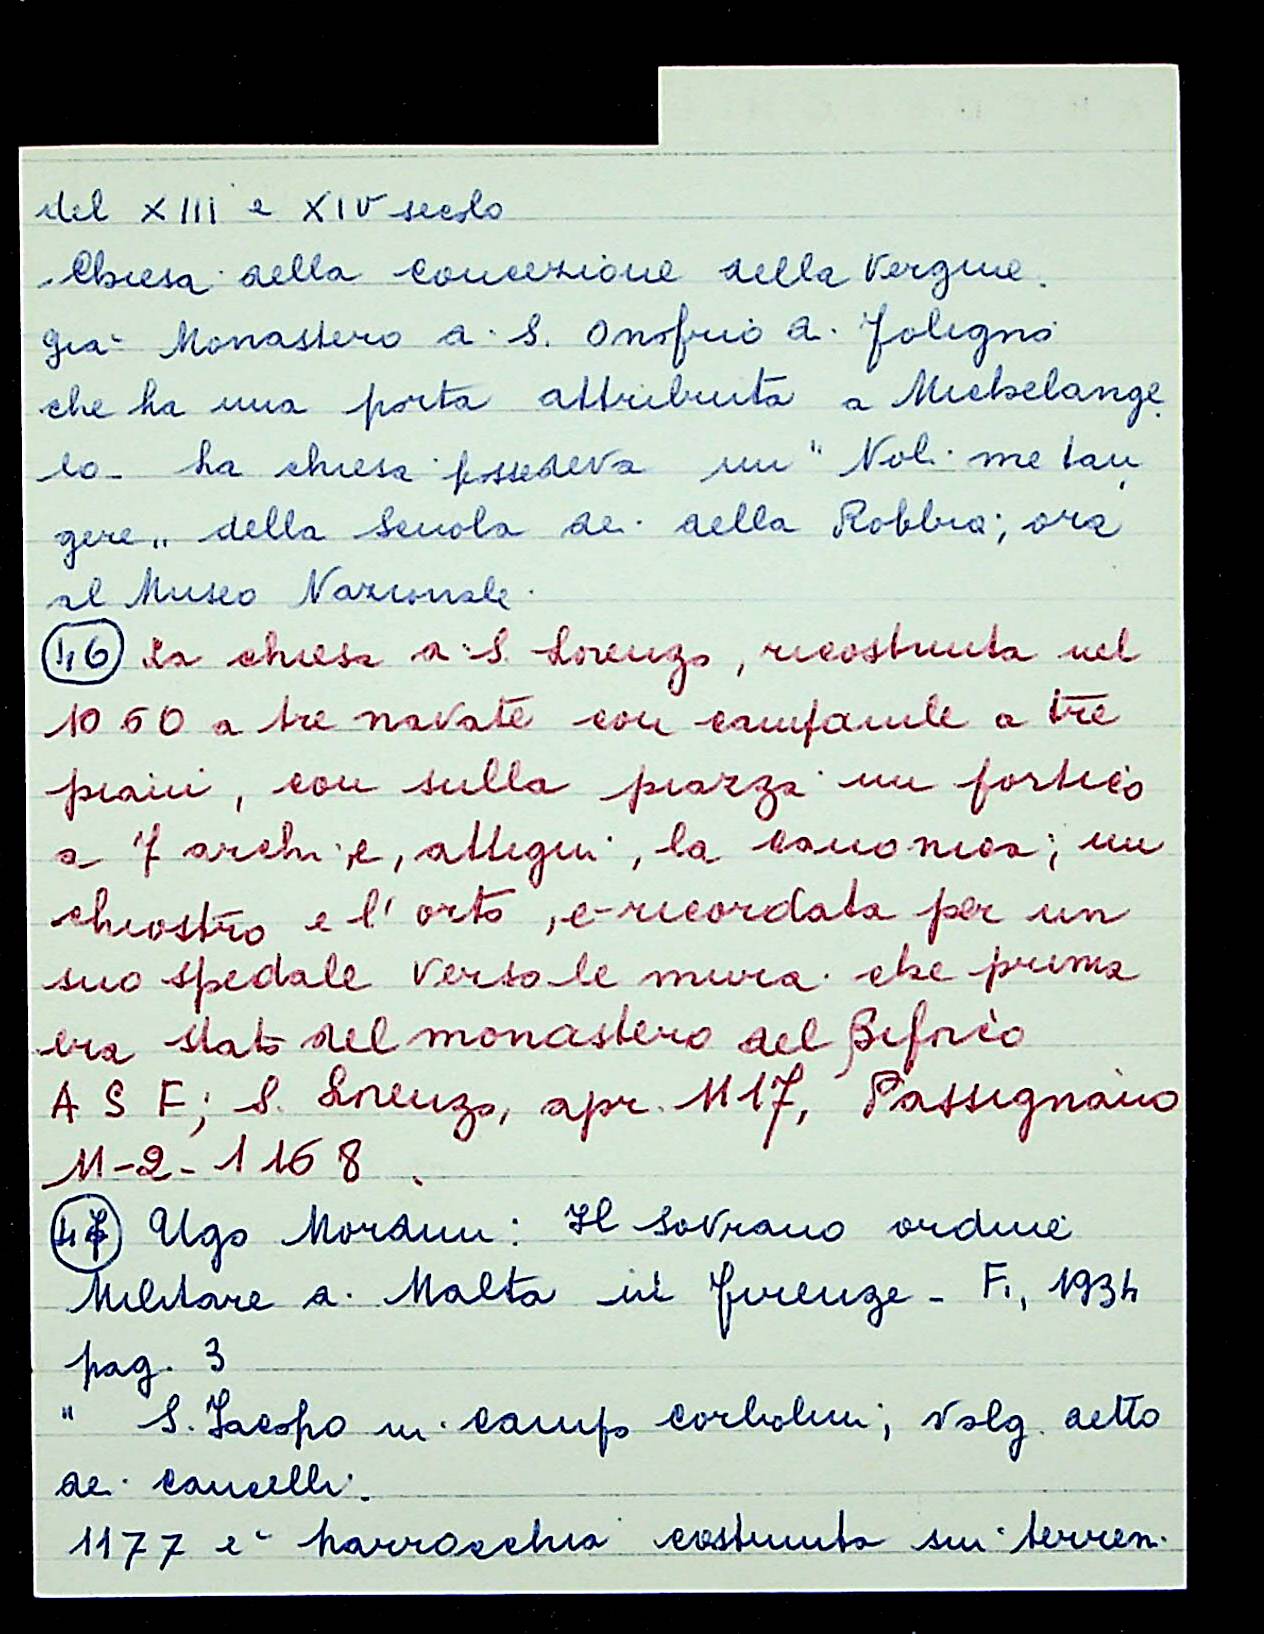 del XIII e XIV secolo
Chiesa della Concezione della Vergine.
già Monastero di S. Onofrio di Foligno
che ha una porta attribuita a Michelange
lo - La chiesa possedeva un "Noli me tan
gere" della Scuola dei della Robbia; ora
al Museo Nazionale.
46 La chiesa di S. Lorenzo, ricostruita nel
1060 a tre navate con campanile a tre
piani, con sulla piazza un portico
a 7 archi e, attigui, la canonica; un
chiostro e l'orto, è ricordata per un
suo spedale verso le mura che prima
era stato del monastero del Biforco
A S F; S. Lorenzo, apr. 1117, Passignano
11-2-1168.
47 Ugo Mordini: Il sovrano ordine
Militare di Malta in Firenze - Fi, 1934
pag. 3
" S. Jacopo in campo corbolini, volg. detto
dei cancelli.
1177 è parrocchia costruita sui terreni